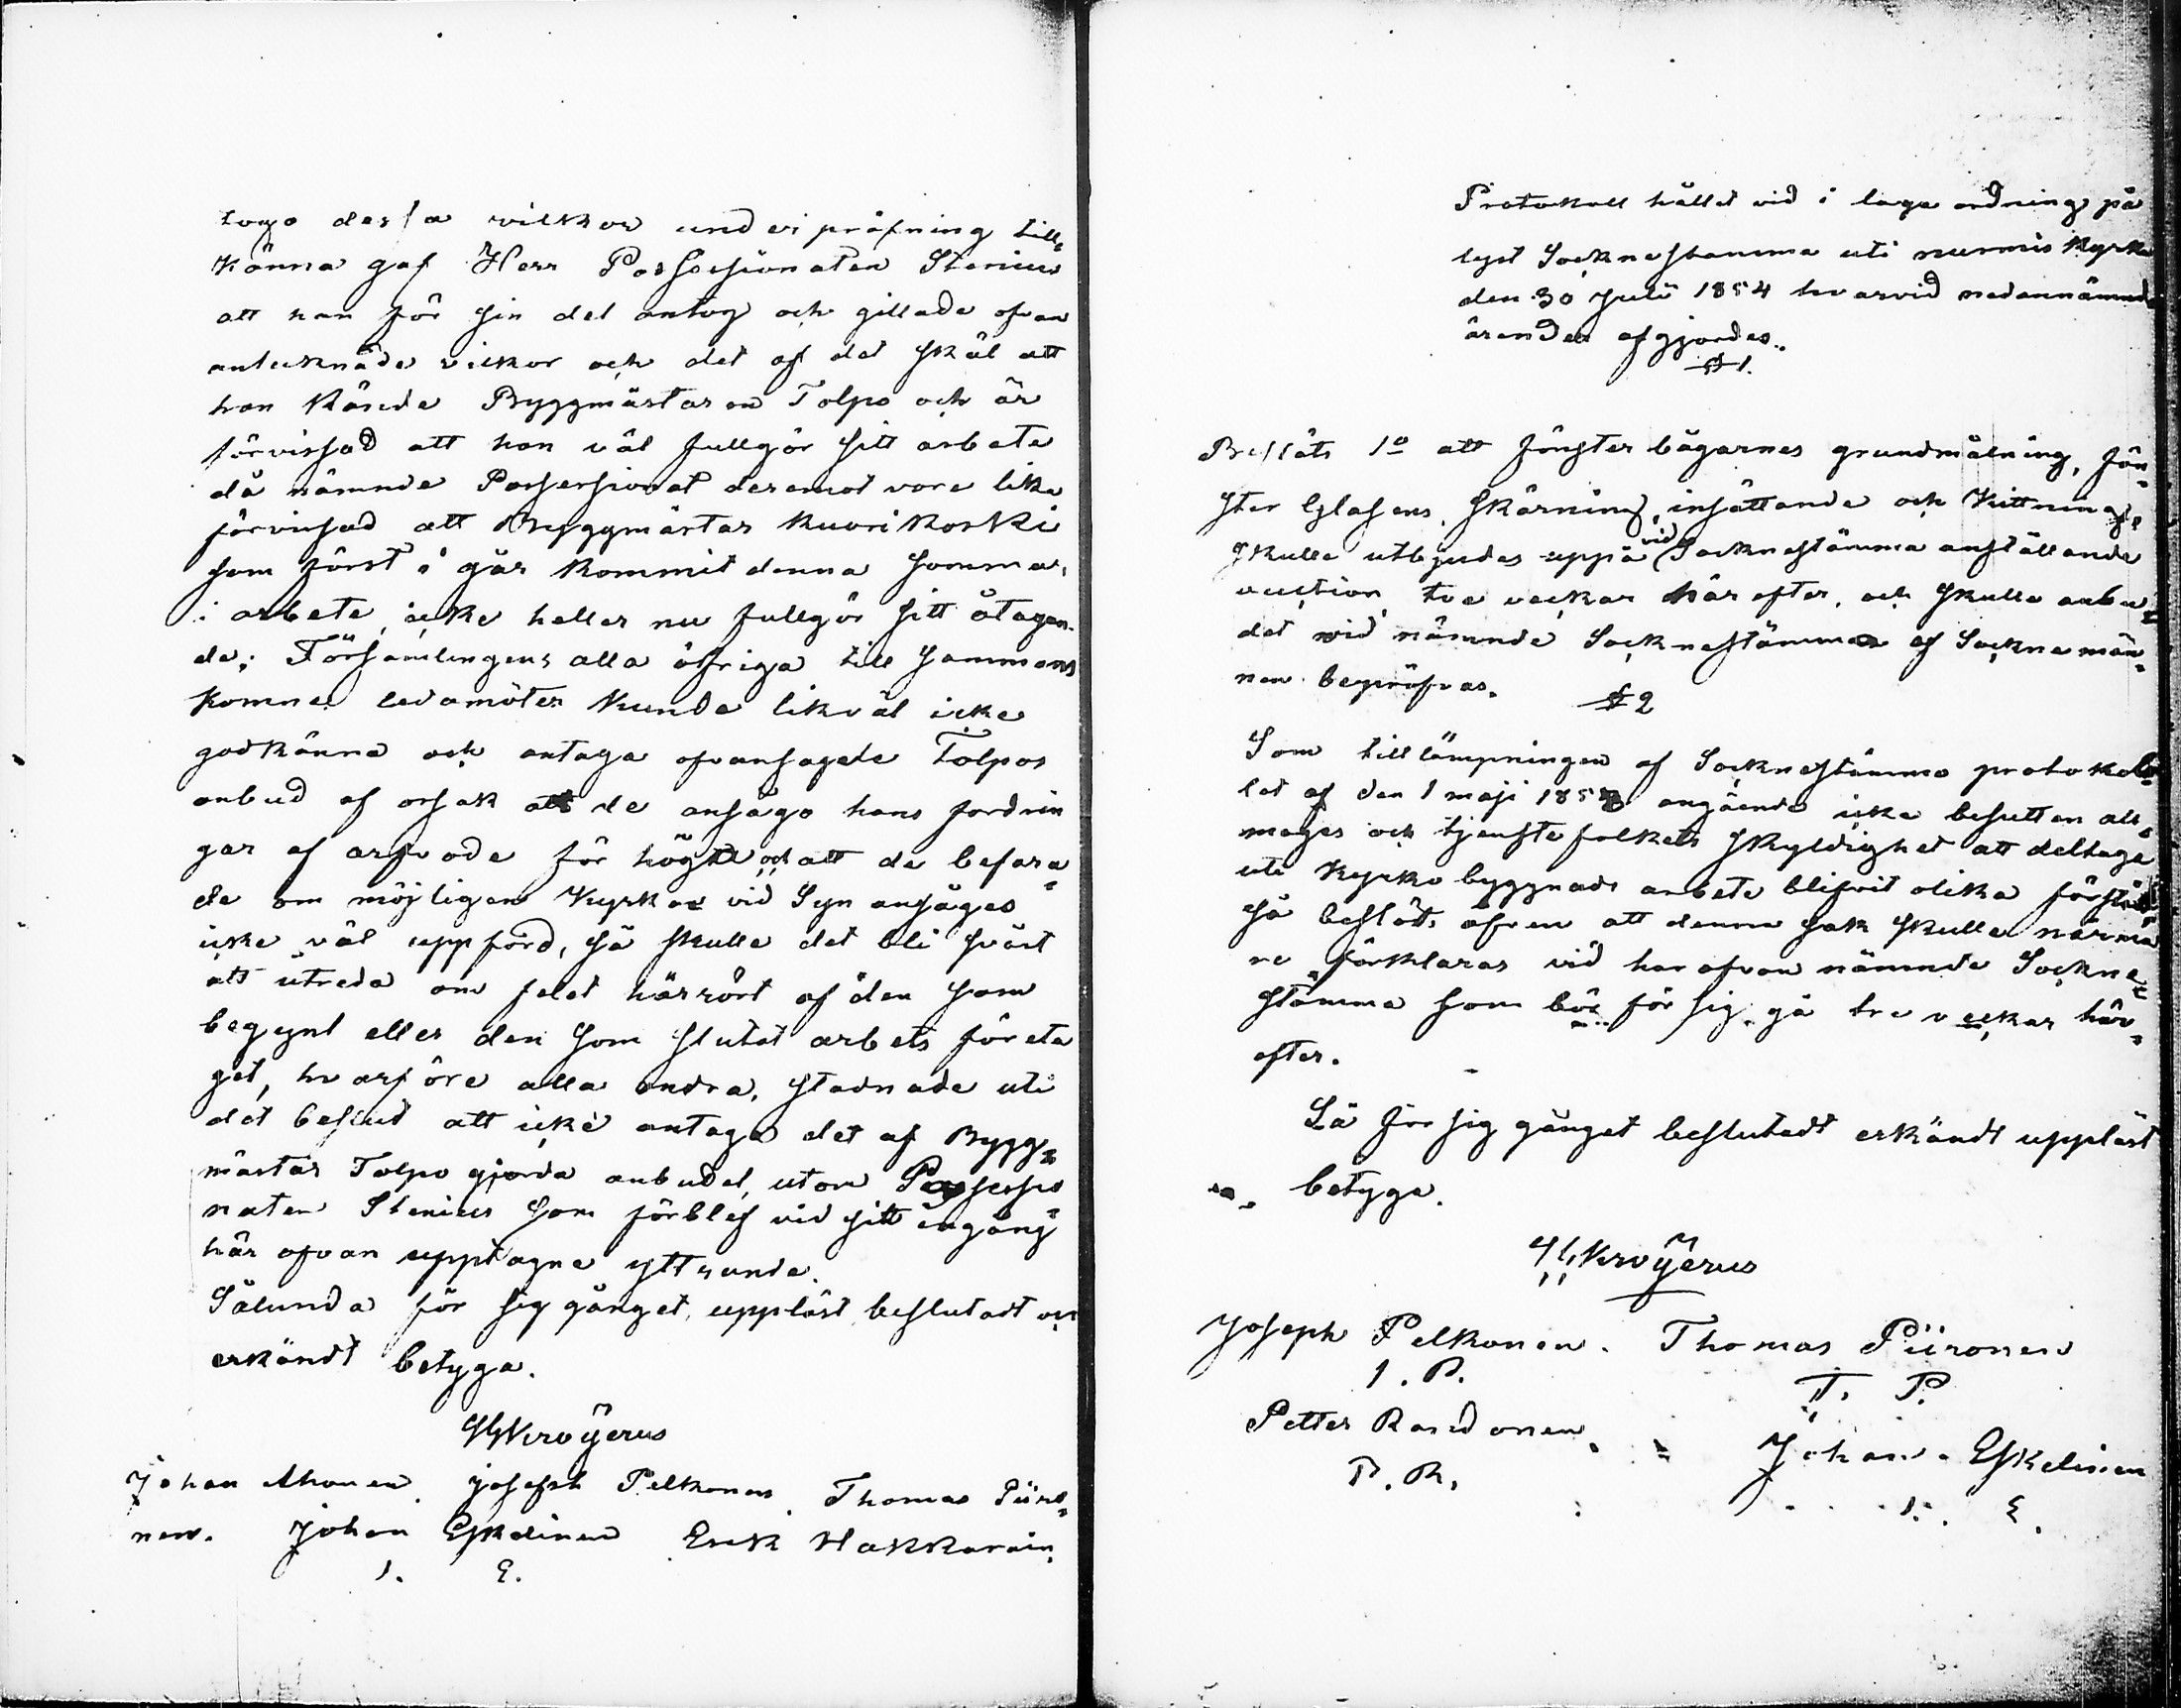 togo dessa vilkor under pröfning till-
känna gaf Herr Possessionaten Stenius
att han för sin del antog och gillade ofvan
antecknade vilkor och det af det skäl att
han kände Byggmästaren Tolpo och är
förvissad att han väl fullgör sitt arbete
då nämnde Possessionat deremot vore lika
förvissad att Byggmästar Kuorikoski
som först i går kommit denna sommar
i arbete icke heller nu fullgör sitt åtagan-
de; Församlingens alla öfriga till samman
komne ledamöter kunde likväl icke
godkänna och antaga ofvansagde Tolpos
anbud af orsak att de ansågo hans fordrin
gar af arfvode för högt och att de befara-
de om möjligen Kyrkan vid Syn ansåges
icke väl uppförd, så skulle det bli svårt
att utreda om felet härrört af den som
begynt eller den som slutat arbets företa
get, hvarföre alla andra, stadnade uti
det beslut att icke antaga det af Bygg-
mästar Tolpo gjorda anbudet, utom Possessio
naten Stenius som förblef vid sitt engång
här ofvan upptagne yttrande.
Sålunda för sig gånget, uppläst beslutadt och
erkändt betyga.
Kroÿerus
Johan Ahonen. Joseph Pelkonen. Thomas Piiro-
nen. Johan Eskelinen Erik Hakkarain.
J. E.
Protokoll hållet vid i laga ordning på
lyst Socknestamma uti nurmis Kyrka
den 30 Julii 1854 hvarvid nedannämnde
ärenden afgjordes.
§ 1.
Beslöts 1o att fönster bågarnes grundmålning, fön-
ster Glasens skärning, insättande och Kittning,
skulle utbjudas uppå vid Socknestämma anställande
auction tre veckor härefter, och skulle anbu-
det vid nämnde Socknestämma af Sockne män-
nen bepröfvas.
§ 2
Som tillämpningen af Socknestämmo protokol-
let af den 1 maji 185 angående icke besutten all-
moges och tjenstefolkets skyldighet att deltaga
uti Kyrko byggnads arbete blifvit olika förstådd
så beslöts äfven att denna sak skulle närma
re förklaras vid harofvan nämnde Sockne-
stämma som bör för sig gå tre veckor här-
efter.
Så för sig gånget beslutadt erkändt uppläst
betyga.
Kroÿerus
Joseph Pelkonen. Thomas Piironen
J. P. T. P.
Petter Randonen. Johan Eskelinen
P. R. J. E.